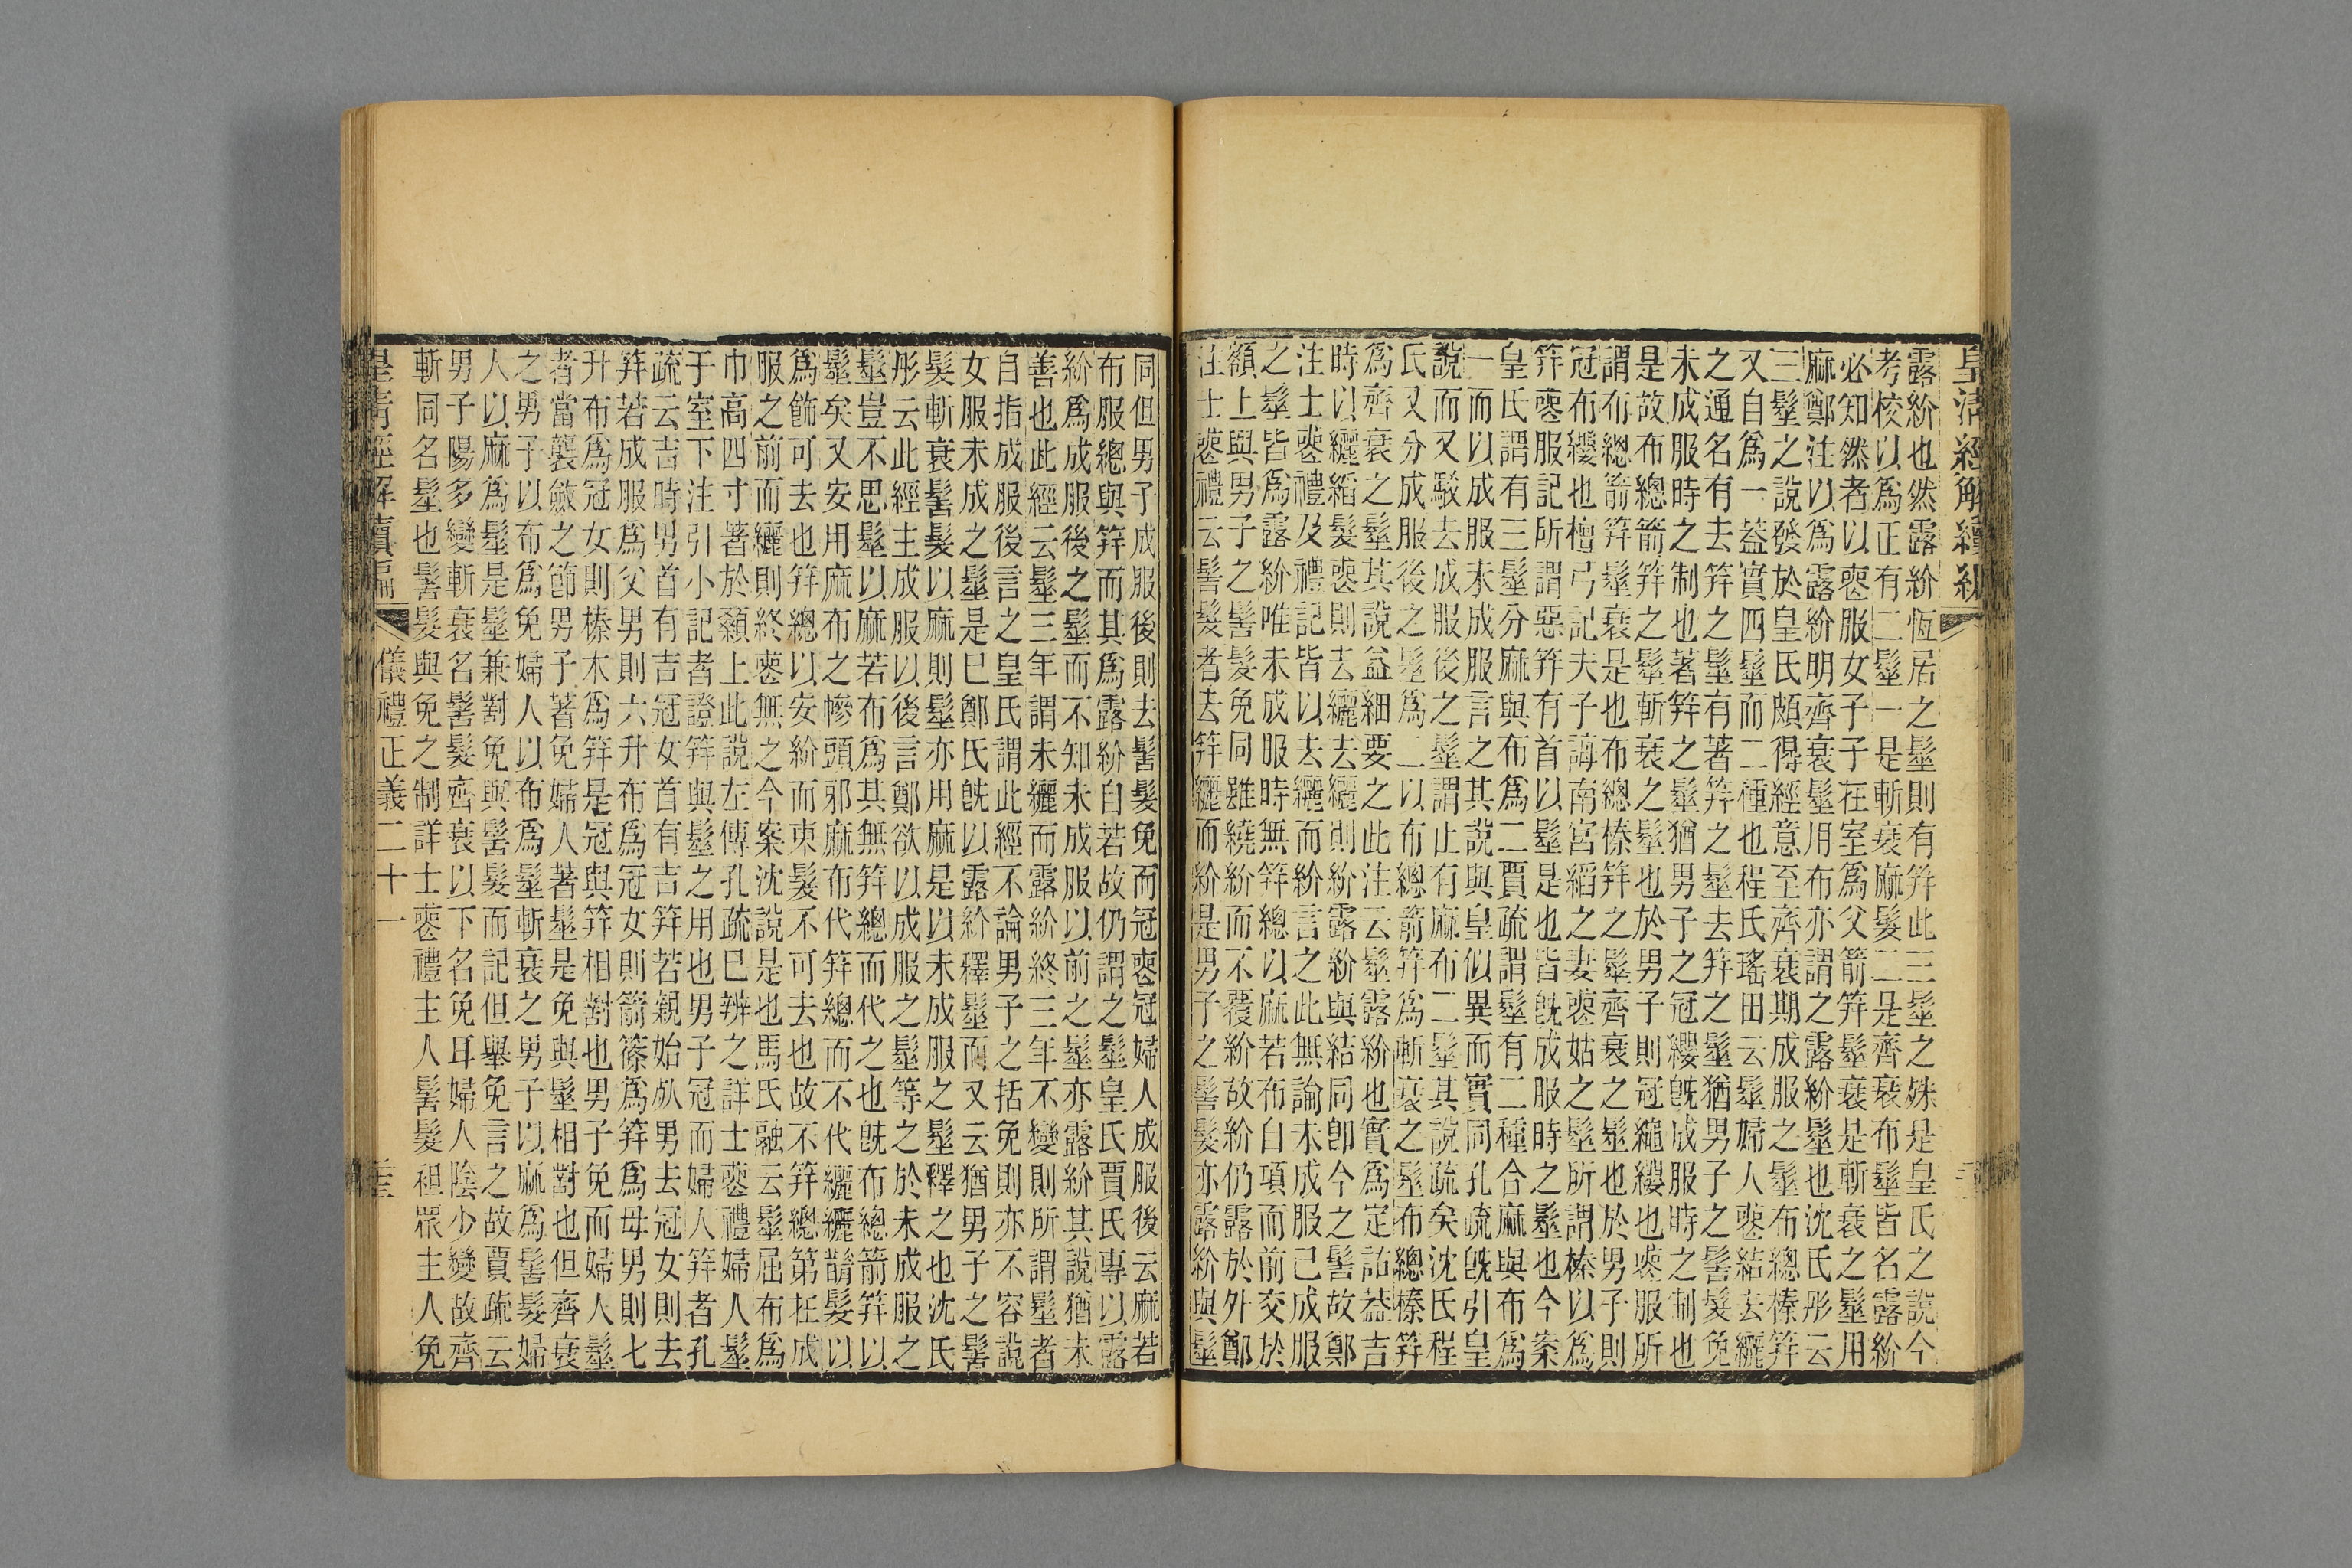 皇清經解續編
露紒也然露紒恆居之髽則有笄此三髽之殊是皇氏之說今
考校以爲正有二髽一是斬衰麻髮二是齊衰布髽皆名露紒
必知然者以喪服女子子在室爲父箭笄髽衰是斬衰之髽用
麻鄭注以爲露紒明齊衰髽用布亦謂之露紒髽也沈氏彤云
三髽之說發於皇氏頗得經意至齊衰期成服之髽布總榛笄
又自爲一葢實四髽而二種也程氏瑤田云髽婦人喪結去纚
之通名有去笄之髽有著笄之髽去笄之髽猶男子之髻髮免
未成服時之制也著笄之髽猶男子之冠纓旣成服時之制也
是故布總箭笄之髽斬衰之髽也於男子則冠繩纓也喪服所
謂布總箭笄髽衰是也布總榛笄之髽齊衰之髽也於男子則
冠布纓也檀弓記夫子誨南宮縚之妻喪姑之髽所謂榛以爲
笄喪服記所謂惡笄有首以髽是也皆旣成服時之髽也今案
皇氏謂有三髽分麻與布爲二賈疏謂髽有二種合麻與布爲
一而以成服未成服言之其說與皇似異而實同孔疏旣引皇
說而又駁去成服後之髽謂止有麻布二髽其說疏矣沈氏程
氏又分成服後之髽爲二以布總箭笄爲斬衰之髽布總榛笄
爲齊衰之髽其說益細要之此注云髽露紒也實爲定詁葢吉
時以纚縚髮喪則去纚去纚則紒露紒與結同卽今之髻故鄭
注士喪禮及禮記皆以去纚而紒言之此無論未成服已成服
之髽皆爲露紒唯未成服時無笄總以麻若布自項而前交於
額上與男子之髻髮免同雖繞紒而不覆紒故紒仍露於外鄭
注士喪禮云髻髮者去笄纚而紒是男子之髻髮亦露紒與髽
同但男子成服後則去髻髮免而冠喪冠婦人成服後云麻若
布服總與笄而其爲露紒自若故仍謂之髽皇氏賈氏專以露
紒爲成服後之髽而不知未成服以前之髽亦露紒其說猶未
善也此經云髽三年謂未纚而露紒終三年不變則所謂髽者
自指成服後言之皇氏謂此經不論男子之括免則亦不容說
女服未成之髽是已鄭氏旣以露紒釋髽而又云猶男子之髻
髮斬衰髻髮以麻則髽亦用麻是以未成服之髽釋之也沈氏
彤云此經主成服以後言鄭欲以成服之髽等之於未成服之
髽豈不思髽以麻若布爲其無笄總而代之也旣布總箭笄以
髽矣又安用麻布之幓頭邪麻布代笄總而不代纚纚韜髮以
爲飾可去也笄總以安紒而束髮不可去也故不笄總第在成
服之前而纚則終喪無之今案沈說是也馬氏融云髽屈布爲
巾高四寸著於顙上此說左傳孔疏已辨之詳士喪禮婦人髽
于室下注引小記者證笄與髽之用也男子冠而婦人笄者孔
疏云吉時男首有吉冠女首有吉笄若親始歾男去冠女則去
笄若成服爲父男則六升布爲冠女則箭篠爲笄爲母男則七
升布爲冠女則榛木爲笄是冠與笄相對也男子免而婦人髽
者當襲斂之節男子著免婦人著髽是免與髽相對也但齊衰
之男子以布爲免婦人以布爲髽斬衰之男子以麻爲髻髮婦
人以麻爲髽是髽兼對免與髻髮而記但舉免言之故賈疏云
男子陽多變斬衰名髻髮齊衰以下名免耳婦人陰少變故齊
斬同名髽也髻髮與免之制詳士喪禮主人髻髮袒眾主人免
皇清經解續編 儀禮正義二十一